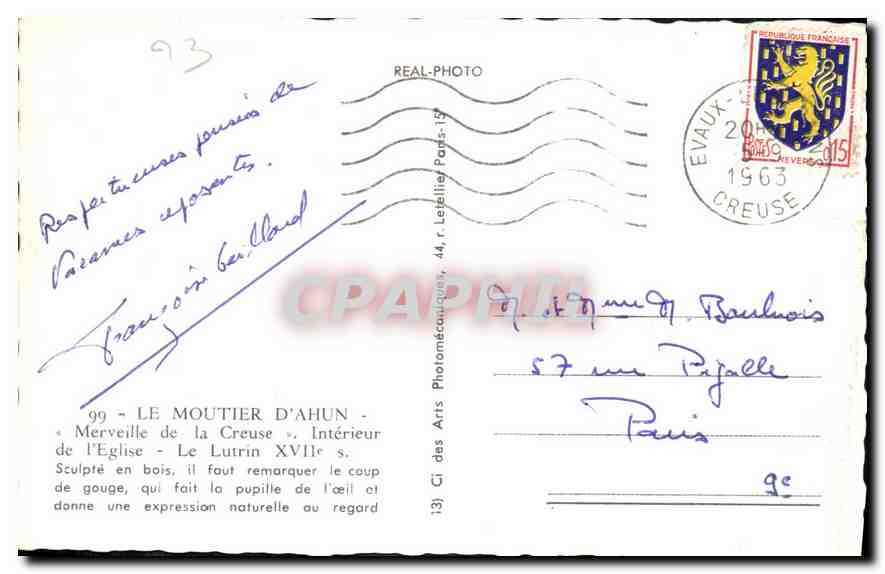 93
REAL-PHOTO
Respectueuses pensées de
Vacances reposantes.
Françoise Gaillard
99 - LE MOUTIER D'AHUN -
« Merveille de la Creuse ». Intérieur
de l'Eglise - Le Lutrin XVIIe s.
Sculpté en bois, il faut remarquer le coup
de gouge, qui fait la pupille de l'œil et
donne une expression naturelle au regard
13) Ci des Arts Photomécaniques, 44, r. Letellier Paris-15e
REPUBLIQUE FRANÇAISE
POSTES
NEVERS
0,15
EVAUX-
20H
5-9
1963
CREUSE
M et Mme M.
57 rue Pigalle
Paris
9e
CPAPHIL